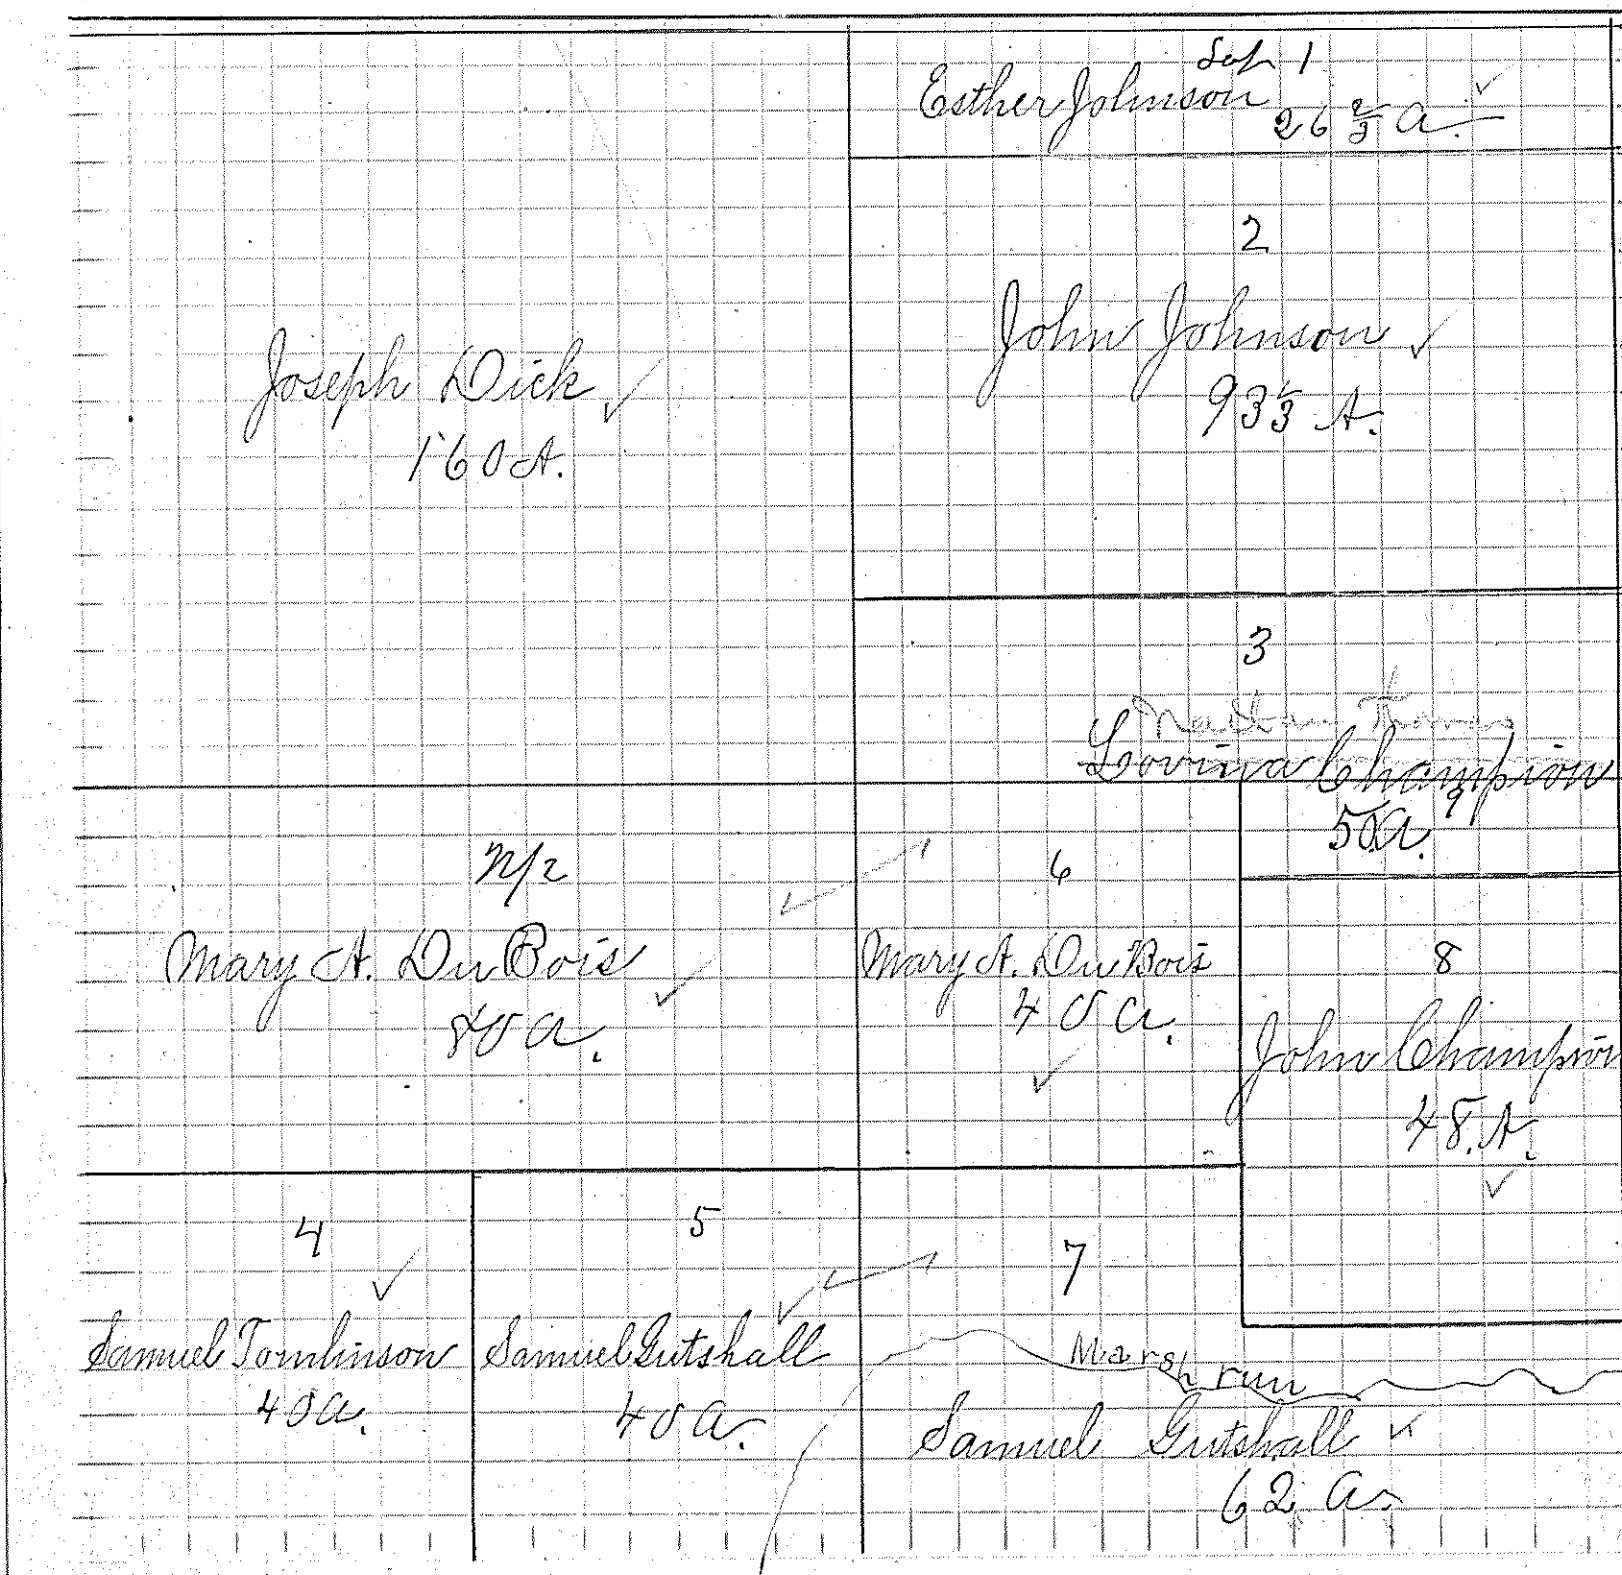 Sub 1
Esther Johnson
26 2/3 a.
2
John Johnson
93 1/3 A.
Joseph Dick
160 A.
3
Lovina Champion
9
50 a.
N/2
Mary A. DuBois
80 a.
6
Mary A. DuBois
40 a.
8
John Champion
48 A.
4
Samuel Tomlinson
40 a.
5
Samuel Gutshall
40 a.
7
Marsh run
Samuel Gutshall
62 a.